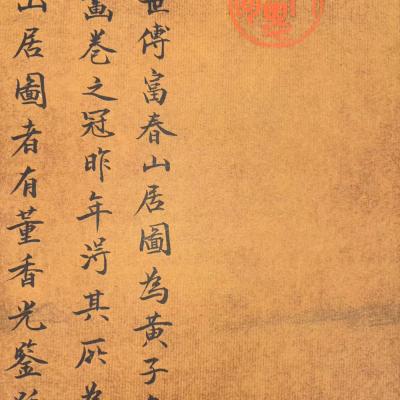 世傳富春山居圖為黃子
畫卷之冠昨年得其所為
山居圖者有董香光鑒跋